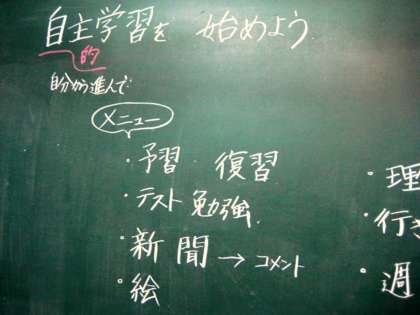 自主学習を 始めよう
的
自分から進んで
メニュー
・予習 復習
・テスト勉強
・新聞→コメント
・絵
・理
・行き
・週